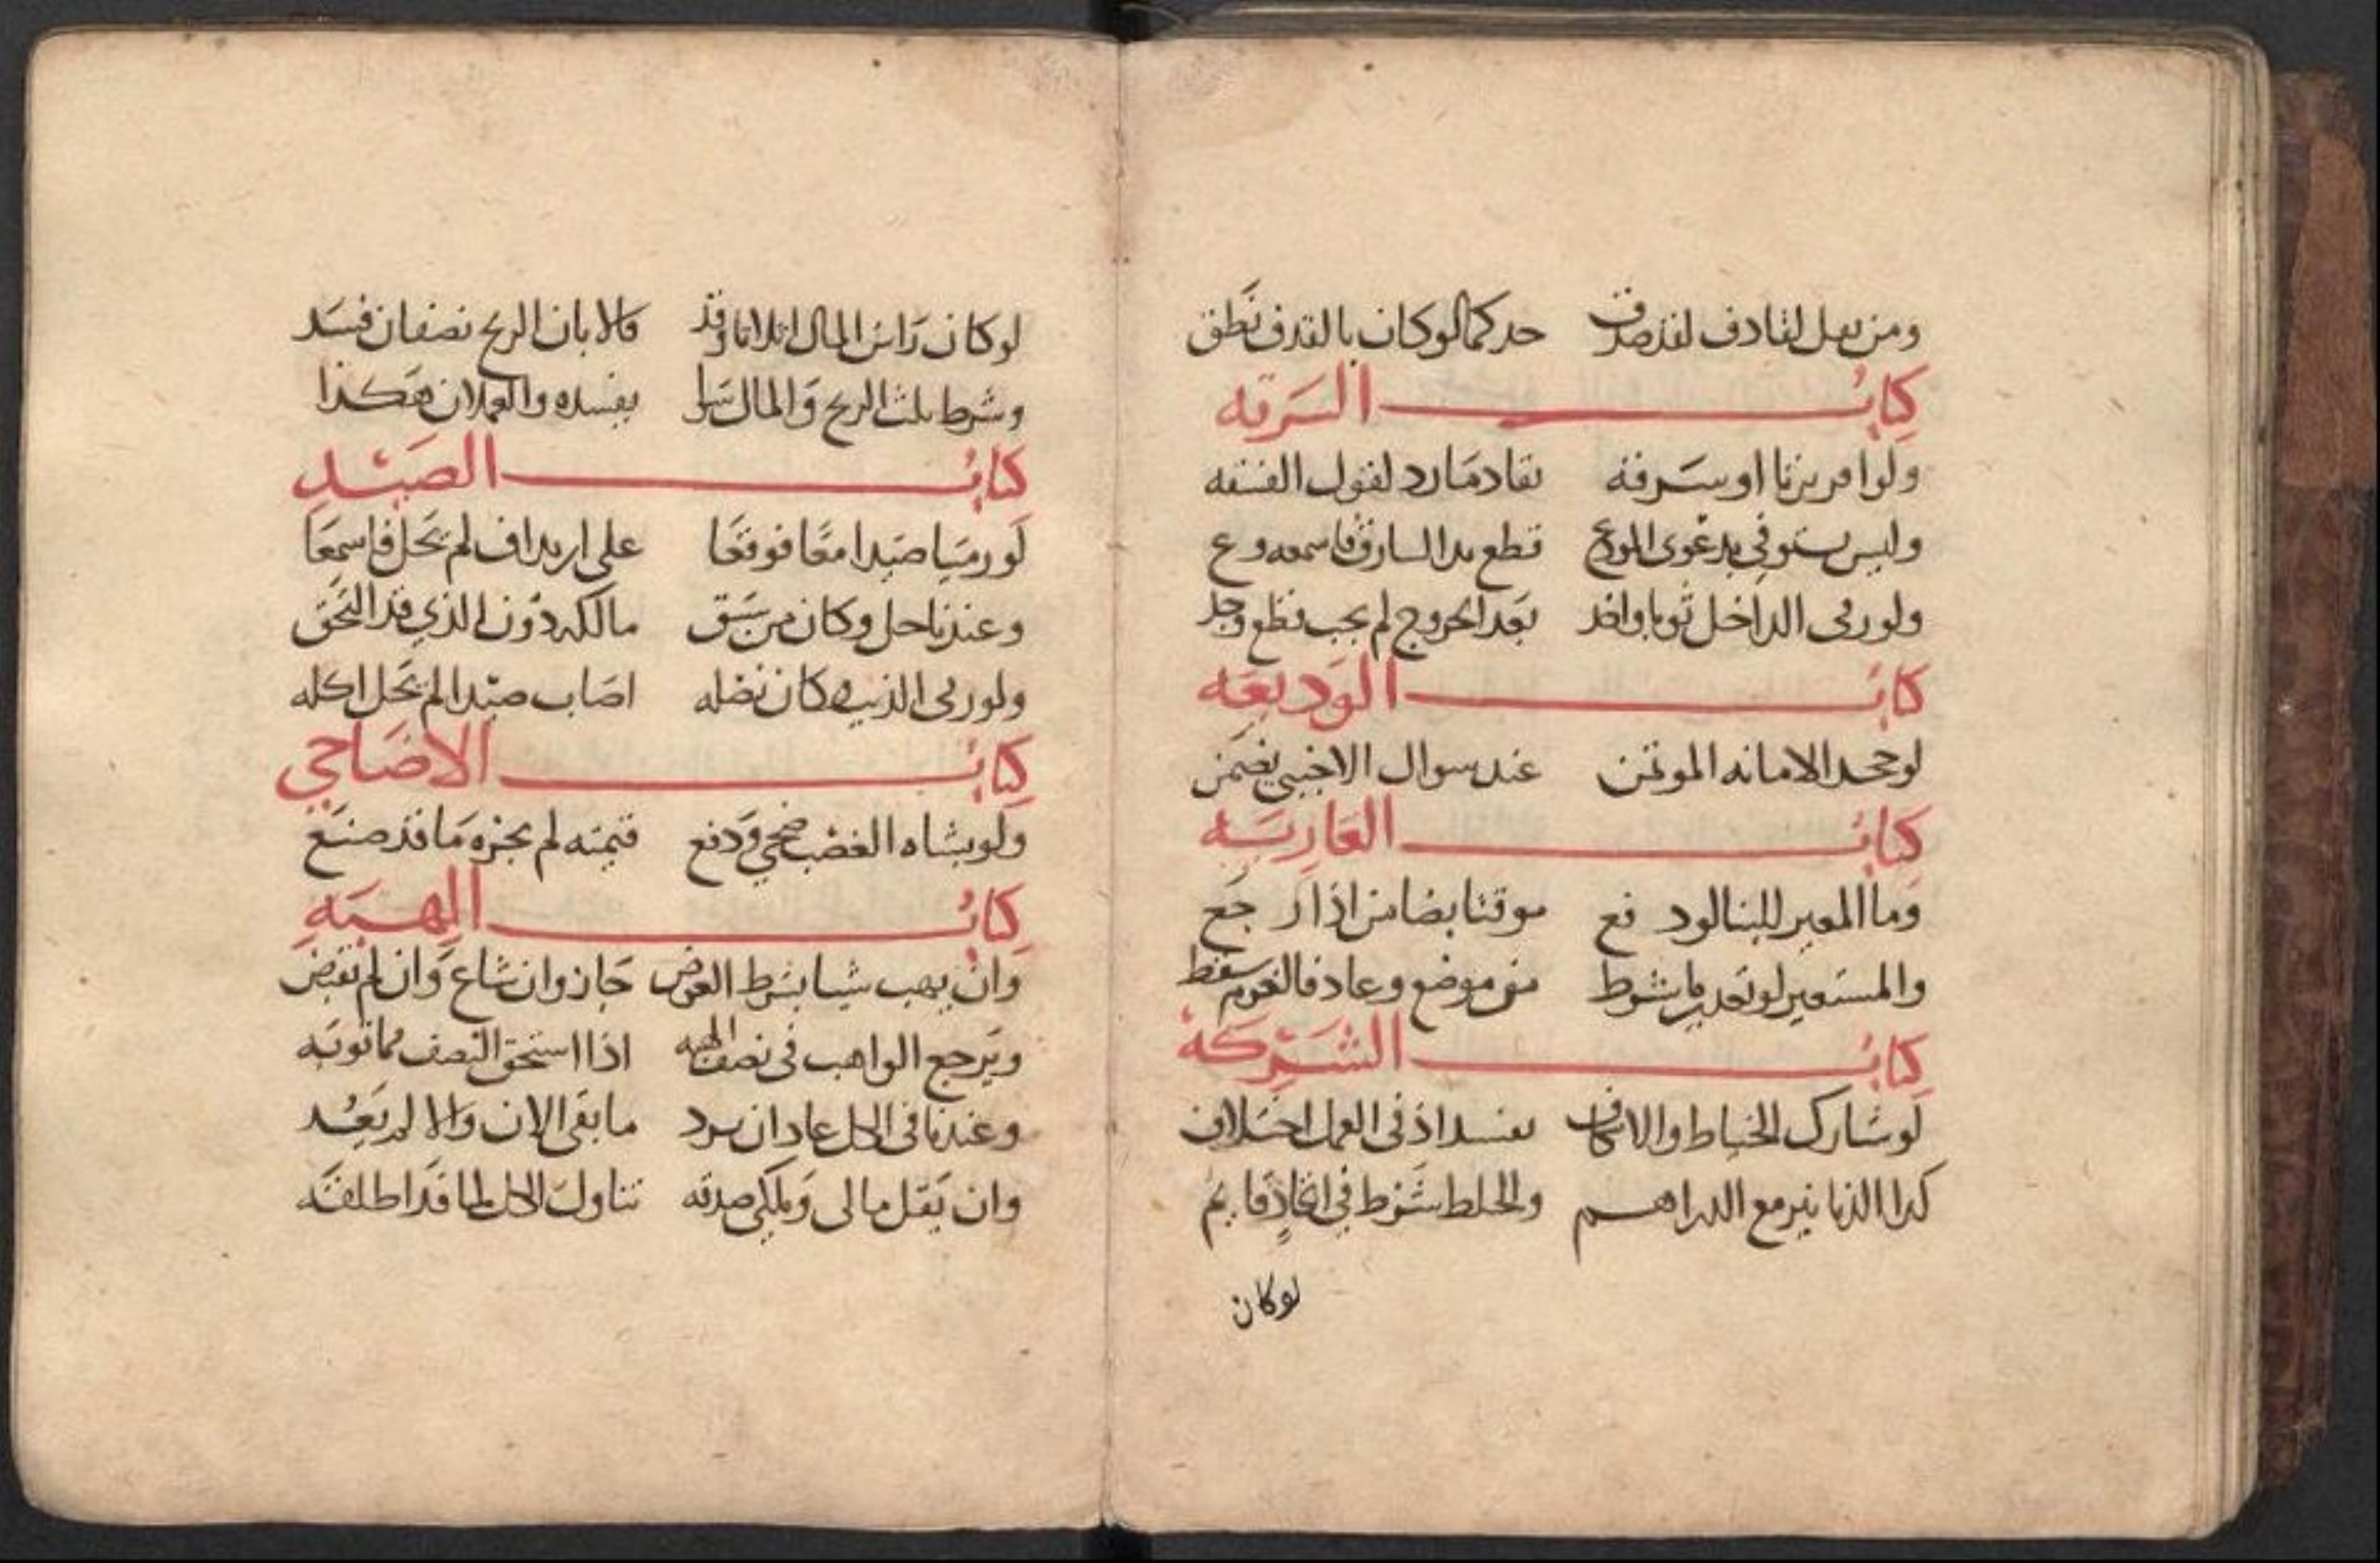 ومن يقل لقاذف لقد صدق حد كما لو كان بالقذف نطق
كتاب السرقه
ولو اقر بزنا او سرقه تقادما رد لقول الفسقه
وليس يستوفي بدعوى المودع قطع يد السارق فاسمعه وع
ولو رمى الداخل ثوبا واخذ بعد الخروج لم يجب قطع وجلد
كتاب الوديعه
لو جحد الامانه الموتمن عند سوال الاجنبي يضمن
كتاب العاريه
وما المعير للبنا لو دفع موقتا بضامن اذا رجع
والمستعير لو تعدى ما شرط من موضع وعاد فالغرم سقط
كتاب الشركة
لو شارك الخياط والاسكاف تفسد اذ في العمل اختلاف
كذا الدنانير مع الدراهم والخلط شرط في اتحاد قايم
لو كان
لو كان راس المال اثلاثا وقد قالا بان الربح نصفان فسد
وشرط ثلث الربح والمال سوا يفسده والعملان هكذا
كتاب الصيد
لو رميا صيدا معا فوقعا على ارتداف لم يحل فاسمعا
وعندنا حل وكان من سبق مالكه دون الذي قد التحق
ولو رمى الذيب وكان نضله اصاب صيدا لم يحل اكله
كتاب الاضاحي
ولو بشاه الغصب ضحي ودفع قيمته لم يجزه ما قد صنع
كتاب الهبه
وان يهب شيا بشرط العوض جاز وان شاع وان لم تقبض
ويرجع الواهب في نصف الهبه اذا استحق النصف مما ثوبه
وعندنا في الكل عاد ان يرد ما بقي الان والا لم يعد
وان يقل مالي وملكي صدقه تناول الكل لما قد اطلقه